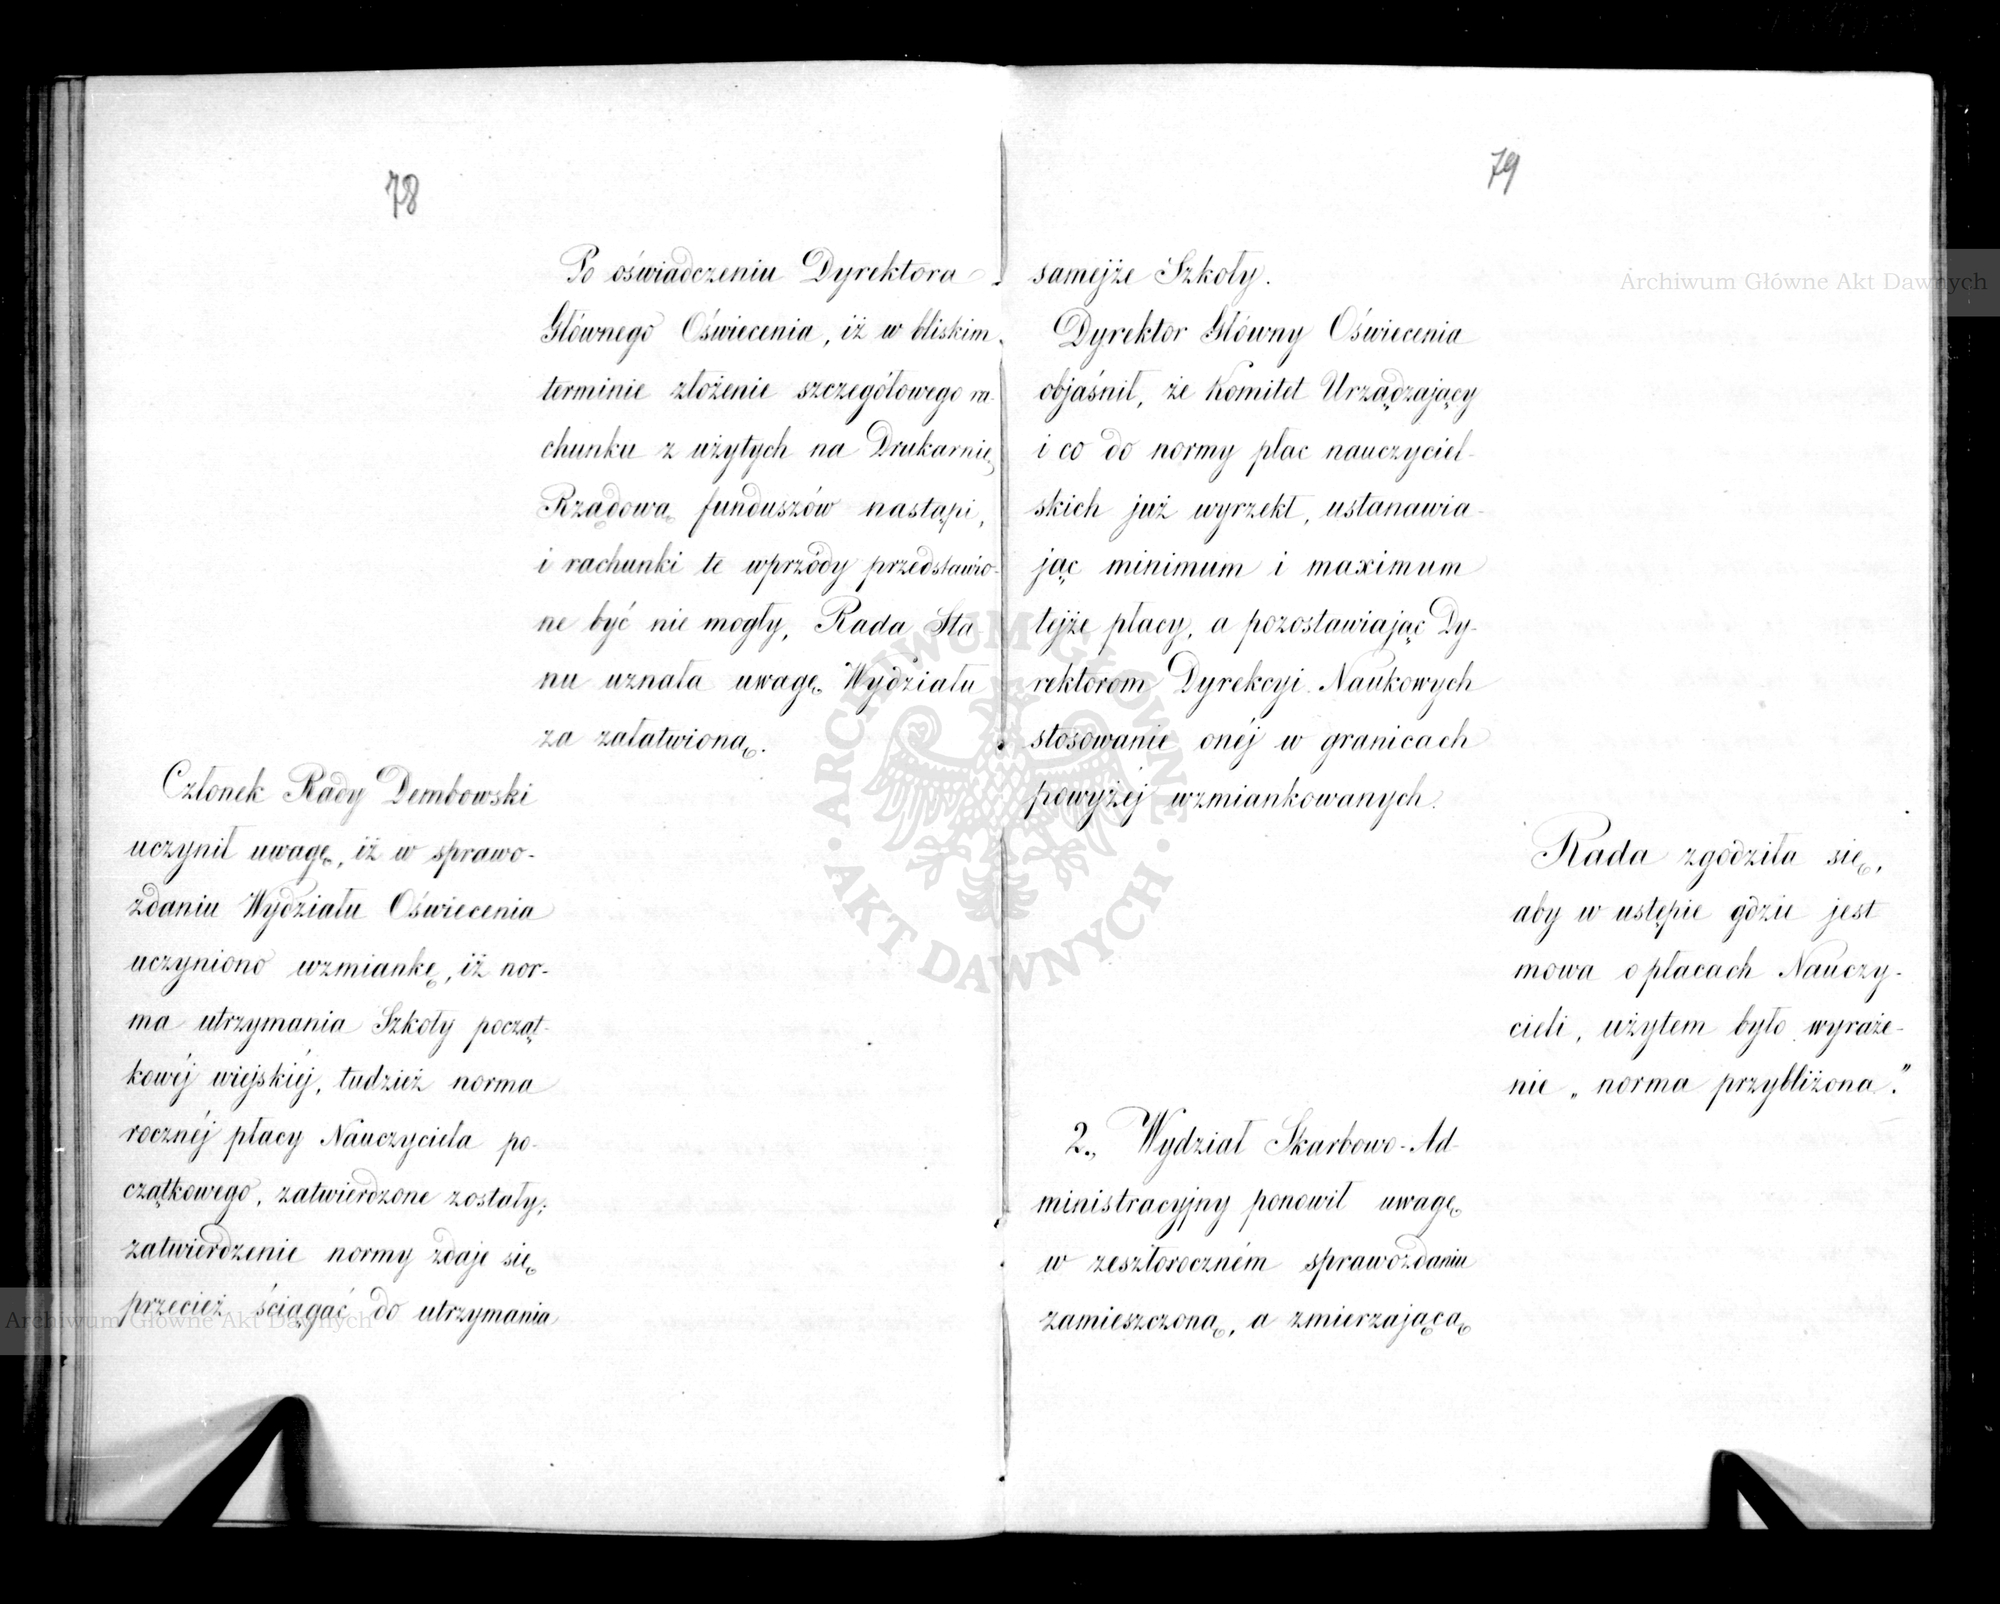 78
Po oświadczeniu Dyrektora
Głównego Oświecenia, iż w bliskim
terminie złożenie szczegółowego ra-
chunku z użytych na Drukarnię
Rządową funduszów nastąpi,
i rachunki te wprzódy przedstawio-
ne być nie mogły, Rada Sta-
nu uznała uwagę Wydziału
za załatwioną.
Członek Rady Dembowski
uczynił uwagę, iż w sprawo-
zdaniu Wydziału Oświecenia
uczyniono wzmiankę, iż nor-
ma utrzymania Szkoły począt-
kowéj wiejskiéj, tudzież norma
rocznéj płacy Nauczyciela po-
czątkowego, zatwierdzone zostały;
zatwierdzenie normy zdaje się
przecież ściągać do utrzymania
79
samejże Szkoły.
Dyrektor Główny Oświecenia
objaśnił, że Komitet Urządzający
i co do normy płac nauczyciel-
skich już wyrzekł, ustanawia-
jąc minimum i maximum
tejże płacy, a pozostawiając Dy-
rektorom Dyrekcyi Naukowych
stosowanie onéj w granicach
powyżéj wzmiankowanych.
Rada zgodziła się,
aby w ustępie gdzie jest
mowa o płacach Nauczy-
cieli, użytem było wyraże-
nie „norma przybliżona."
2., Wydział Skarbowo-Ad-
ministracyjny ponowił uwagę
w zeszłoroczném sprawozdaniu
zamieszczoną, a zmierzającą
Archiwum Główne Akt Dawnych
Archiwum Główne Akt Dawnych
ARCHIWUM GŁÓWNE
AKT DAWNYCH